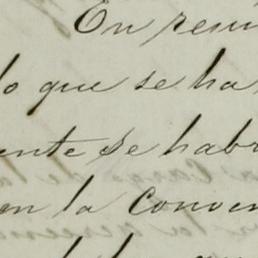 En resu
lo que se ha
ente se habr
en la conven